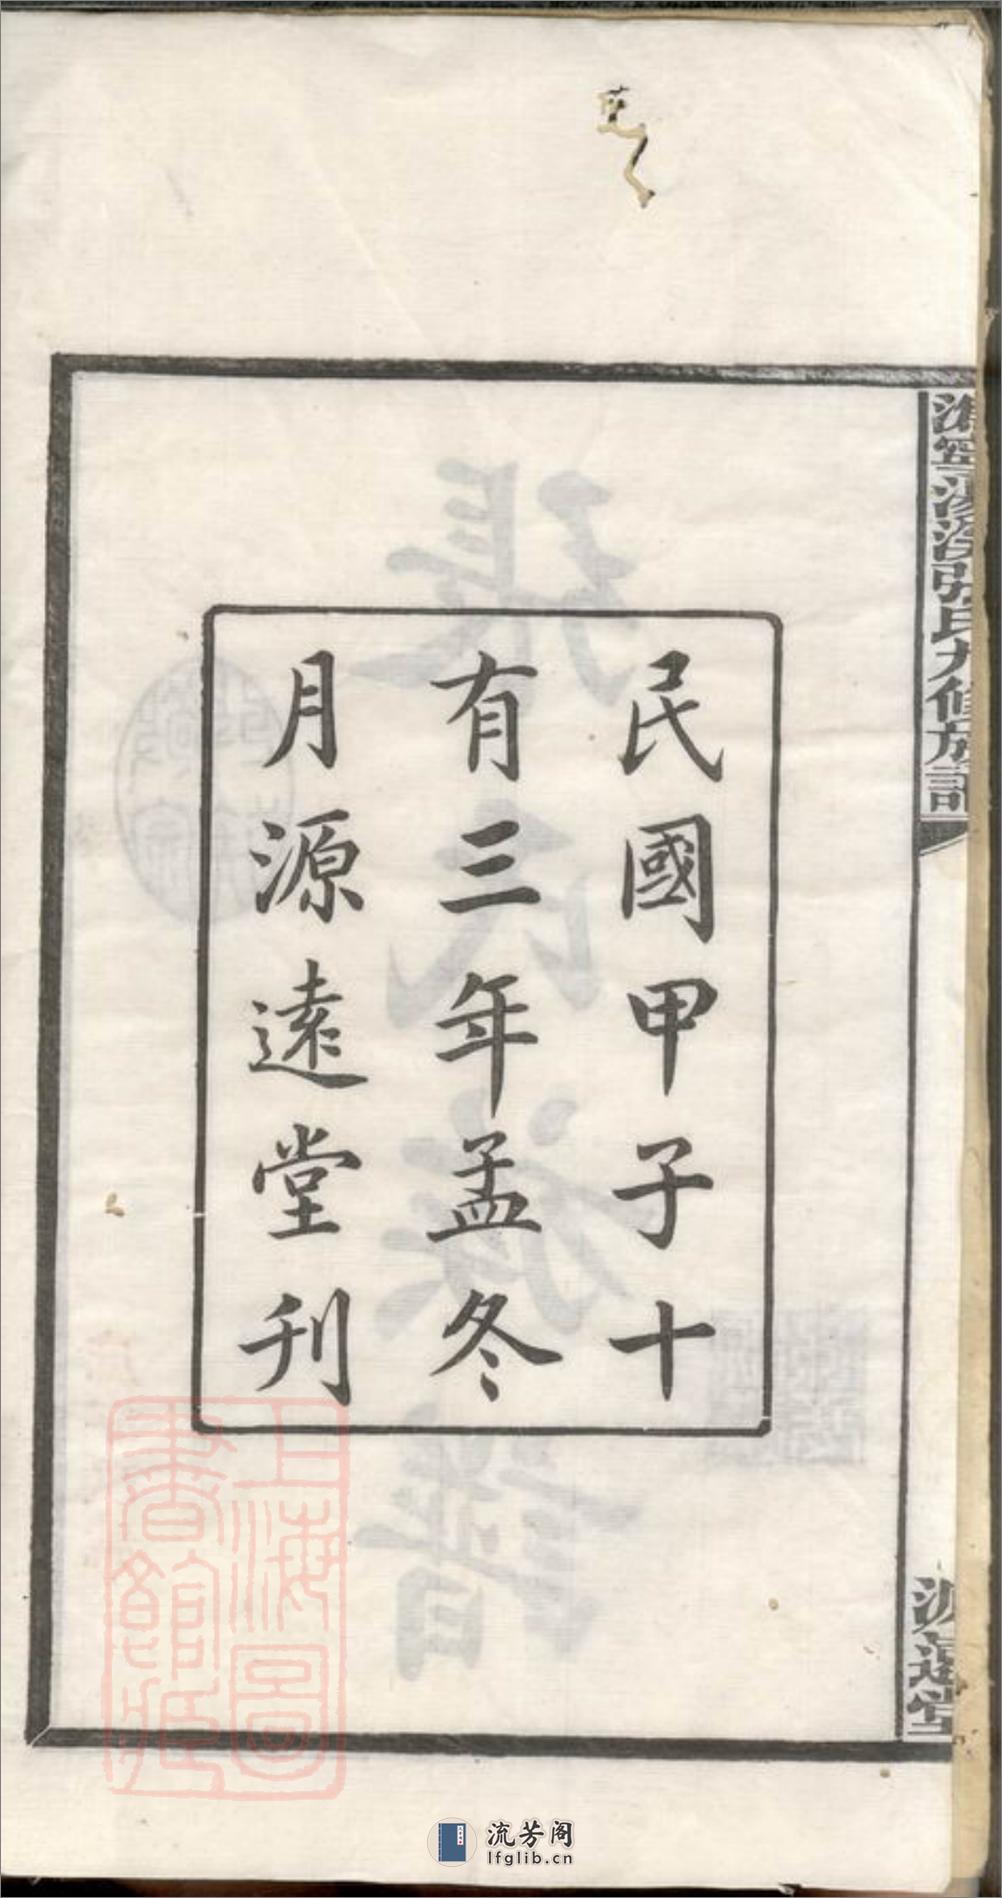 民國甲子十
有三年孟冬
月源遠堂刊
張氏族譜
上海圖
書館藏
流芳阁
lfglib.cn